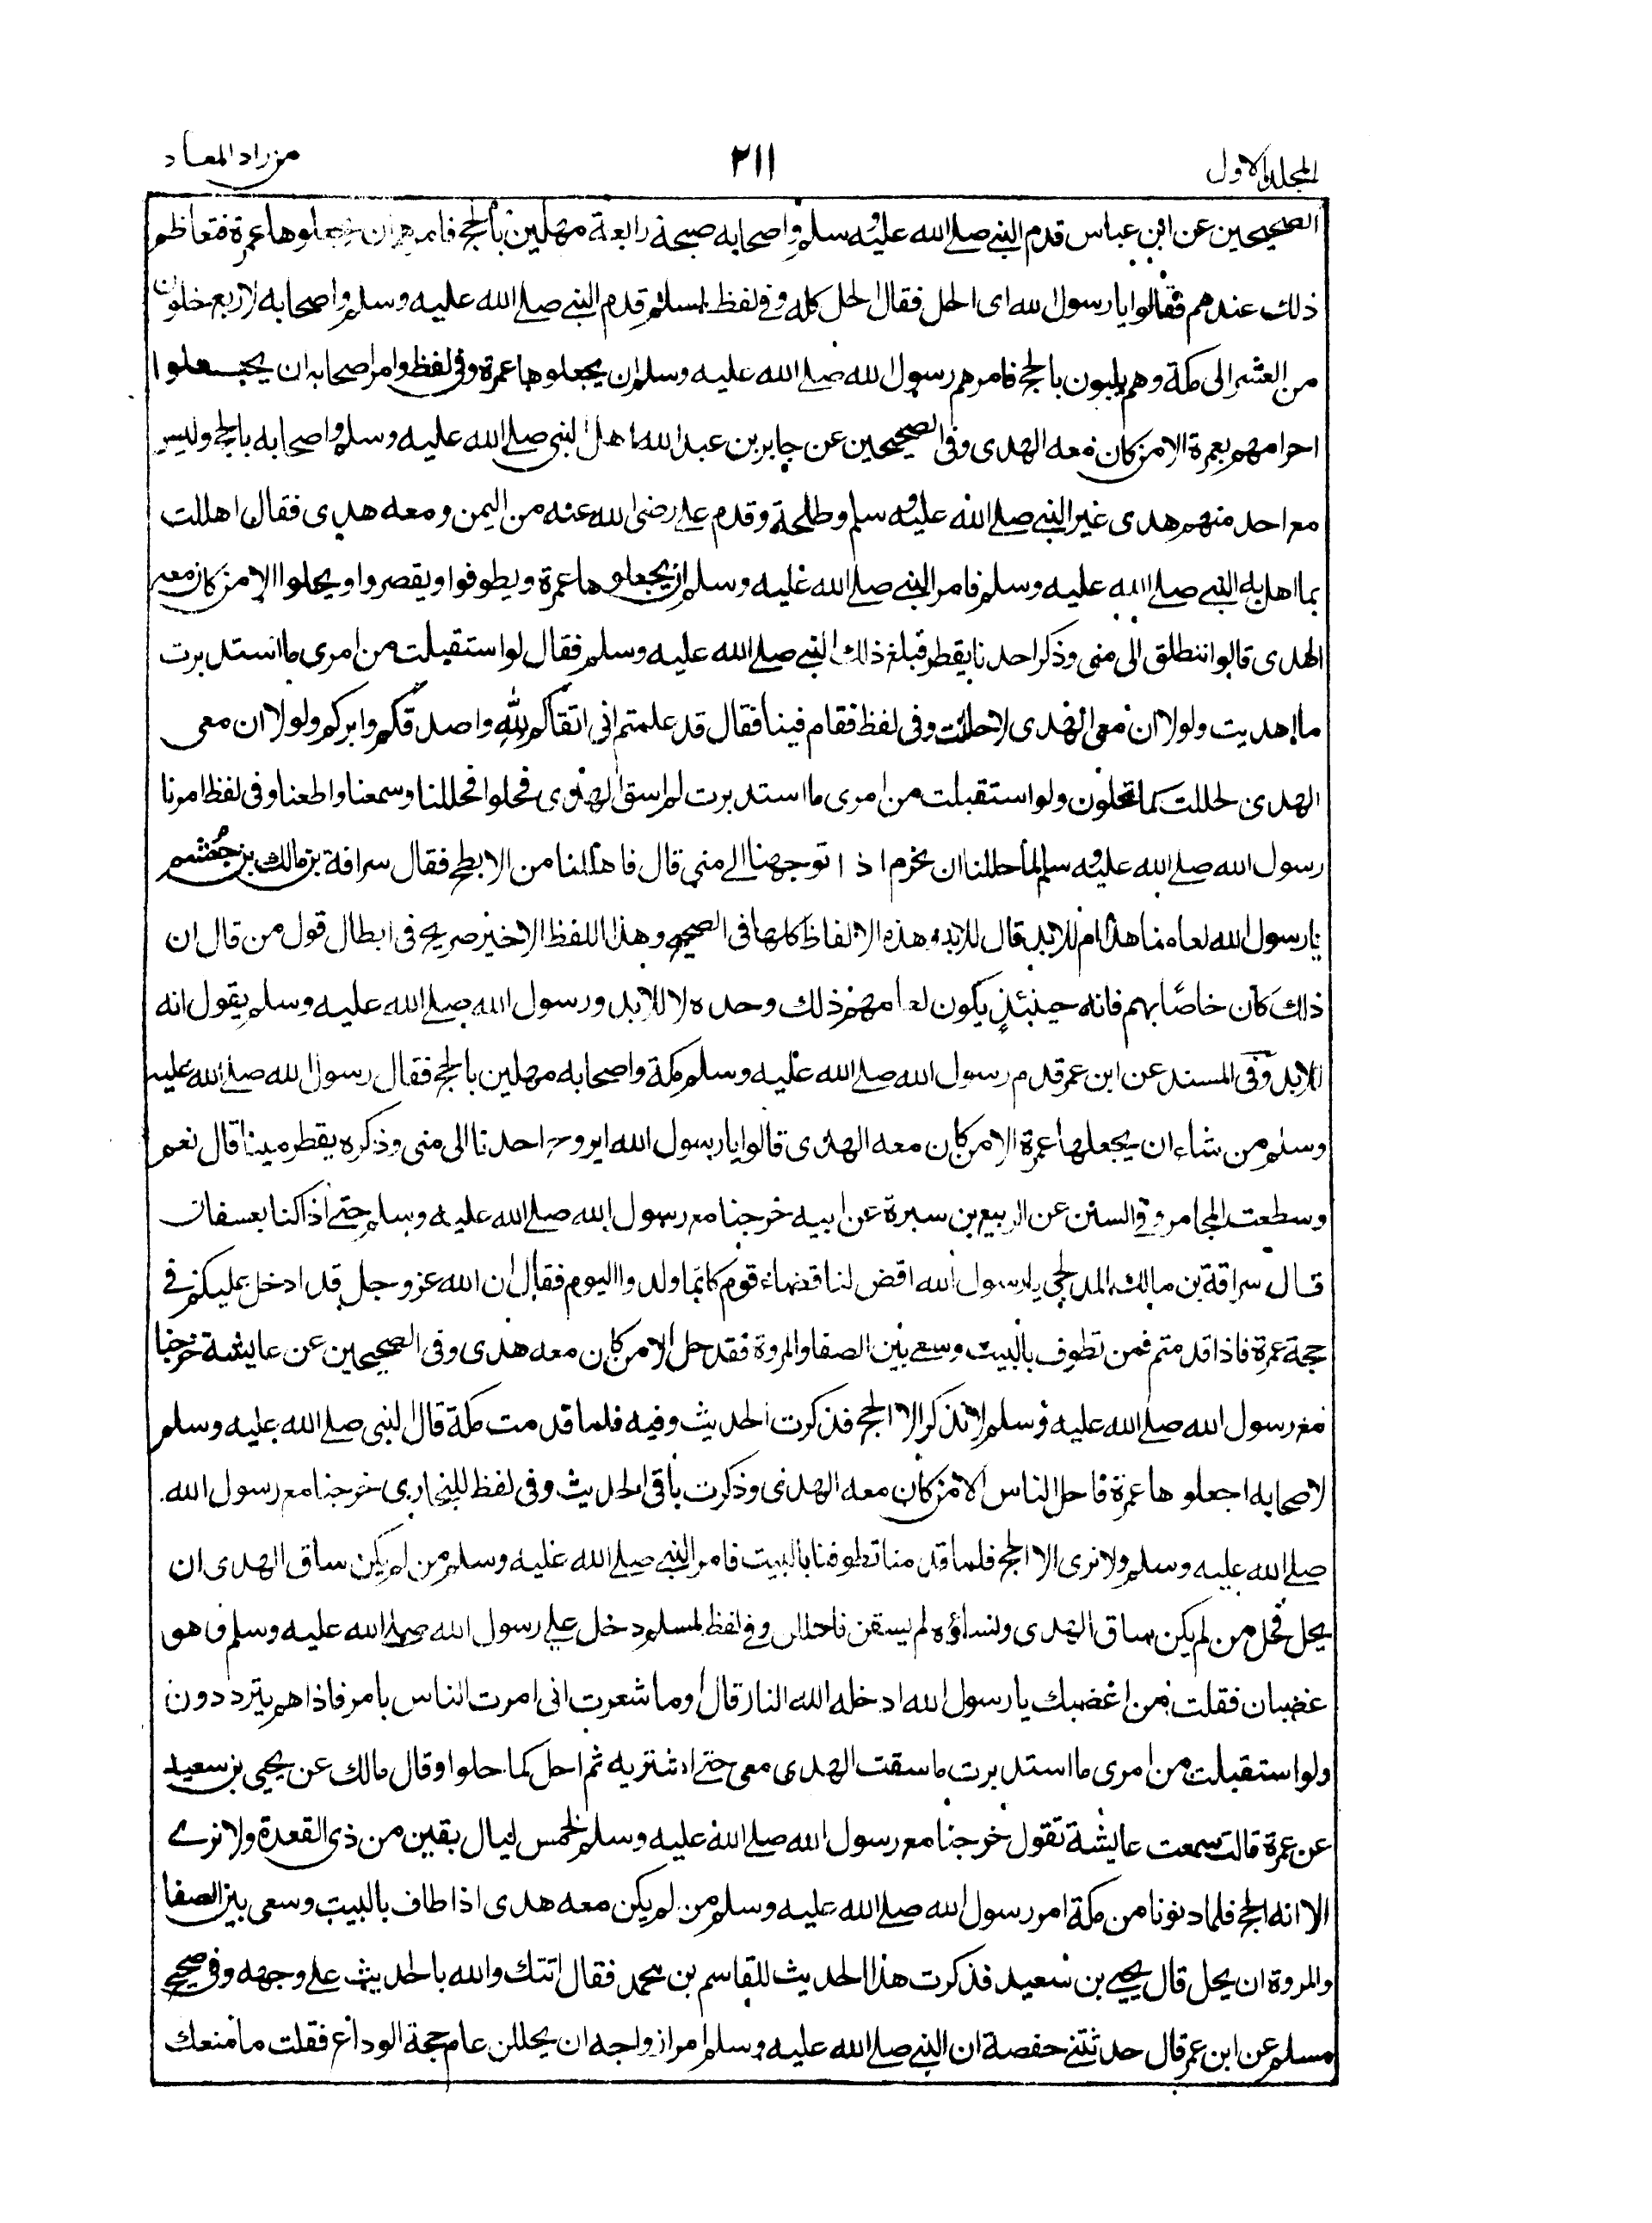 المجلد الاول
٢١١
من زاد المعاد
الصحيحين عن ابن عباس قدم النبى صلى الله عليه وسلم واصحابه صبحة رابعة مهلين بالحج فامرهم ان يجعلوها عمرة فتعاظم
ذلك عندهم فقالوا يا رسول الله اى الحل فقال الحل كله وفى لفظ لمسلم قدم النبى صلى الله عليه وسلم واصحابه لاربع خلون
من العشر الى مكة وهم يلبون بالحج فامرهم رسول الله صلى الله عليه وسلم ان يجعلوها عمرة وفى لفظ وامر اصحابه ان يجعلوا
احرامهم بعمرة الا من كان معه الهدى وفى الصحيحين عن جابر بن عبد الله اهل النبى صلى الله عليه وسلم واصحابه بالحج وليس
مع احد منهم هدى غير النبى صلى الله عليه وسلم وطلحة وقدم على رضى الله عنه من اليمن ومعه هدى فقال اهللت
بما اهل به النبى صلى الله عليه وسلم فامر النبى صلى الله عليه وسلم ان يجعلوها عمرة ويطوفوا ويقصروا ويحلوا الا من كان معه
الهدى قالوا ننطلق الى منى وذكر احدنا يقطر فبلغ ذلك النبى صلى الله عليه وسلم فقال لو استقبلت من امرى ما استدبرت
ما اهديت ولولا ان معى الهدى لاحللت وفى لفظ فقام فينا فقال قد علمتم انى اتقاكم لله واصدقكم وابركم ولولا ان معى
الهدى لحللت كما تحلون ولو استقبلت من امرى ما استدبرت لم اسق الهدى فحلوا فحللنا وسمعنا واطعنا وفى لفظ امرنا
رسول الله صلى الله عليه وسلم لما احللنا ان نحرم اذا توجهنا الى منى قال فاهللنا من الابطح فقال سراقة بن مالك بن جُعْشم
يا رسول الله لعامنا هذا ام للابد قال للابد وهذه الالفاظ كلها فى الصحيح وهذا اللفظ الاخير صريح فى ابطال قول من قال ان
ذلك كان خاصًا بهم فانه حينئذٍ يكون لعامهم ذلك وحده لا للابد ورسول الله صلى الله عليه وسلم يقول انه
للابد وفى المسند عن ابن عمر قدم رسول الله صلى الله عليه وسلم مكة واصحابه مهلين بالحج فقال رسول الله صلى الله عليه
وسلم من شاء ان يجعلها عمرة الا من كان معه الهدى قالوا يا رسول الله ايروح احدنا الى منى وذكره يقطر منيا قال نعم
وسطعت المجامر وفى السنن عن الربيع بن سبرة عن ابيه خرجنا مع رسول الله صلى الله عليه وسلم حتى اذا كنا بعسفان
قال سراقة بن مالك المدلجى يا رسول الله اقض لنا قضاء قوم كانما ولدوا اليوم فقال ان الله عز وجل قد ادخل عليكم فى
حجة عمرة فاذا قدمتم فمن تطوف بالبيت وسعى بين الصفا والمروة فقد حل الا من كان معه هدى وفى الصحيحين عن عايشة خرجنا
مع رسول الله صلى الله عليه وسلم لا نذكر الا الحج فذكرت الحديث وفيه فلما قدمت مكة قال النبى صلى الله عليه وسلم
لاصحابه اجعلوها عمرة فاحل الناس الا من كان معه الهدى وذكرت باقى الحديث وفى لفظ للبخارى خرجنا مع رسول الله
صلى الله عليه وسلم ولا نرى الا الحج فلما قدمنا تطوفنا بالبيت فامر النبى صلى الله عليه وسلم من لم يكن ساق الهدى ان
يحل فحل من لم يكن ساق الهدى ونساؤه لم يسقن فاحللن وفى لفظ لمسلم دخل على رسول الله صلى الله عليه وسلم وهو
غضبان فقلت من اغضبك يا رسول الله ادخله الله النار قال اوما شعرت انى امرت الناس بامر فاذا هم يترددون
ولو استقبلت من امرى ما استدبرت ما سقت الهدى معى حتى اشتريه ثم احل كما حلوا وقال مالك عن يحيى بن سعيد
عن عمرة قالت سمعت عايشة تقول خرجنا مع رسول الله صلى الله عليه وسلم لخمس ليال بقين من ذى القعدة ولا نرى
الا انه الحج فلما دنونا من مكة امر رسول الله صلى الله عليه وسلم من لم يكن معه هدى اذا طاف بالبيت وسعى بين الصفا
والمروة ان يحل قال يحيى بن سعيد فذكرت هذا الحديث للقاسم بن محمد فقال اتتك والله بالحديث على وجهه وفى صحيح
مسلم عن ابن عمر قال حدثتنى حفصة ان النبى صلى الله عليه وسلم امر ازواجه ان يحللن عام حجة الوداع فقلت ما منعك